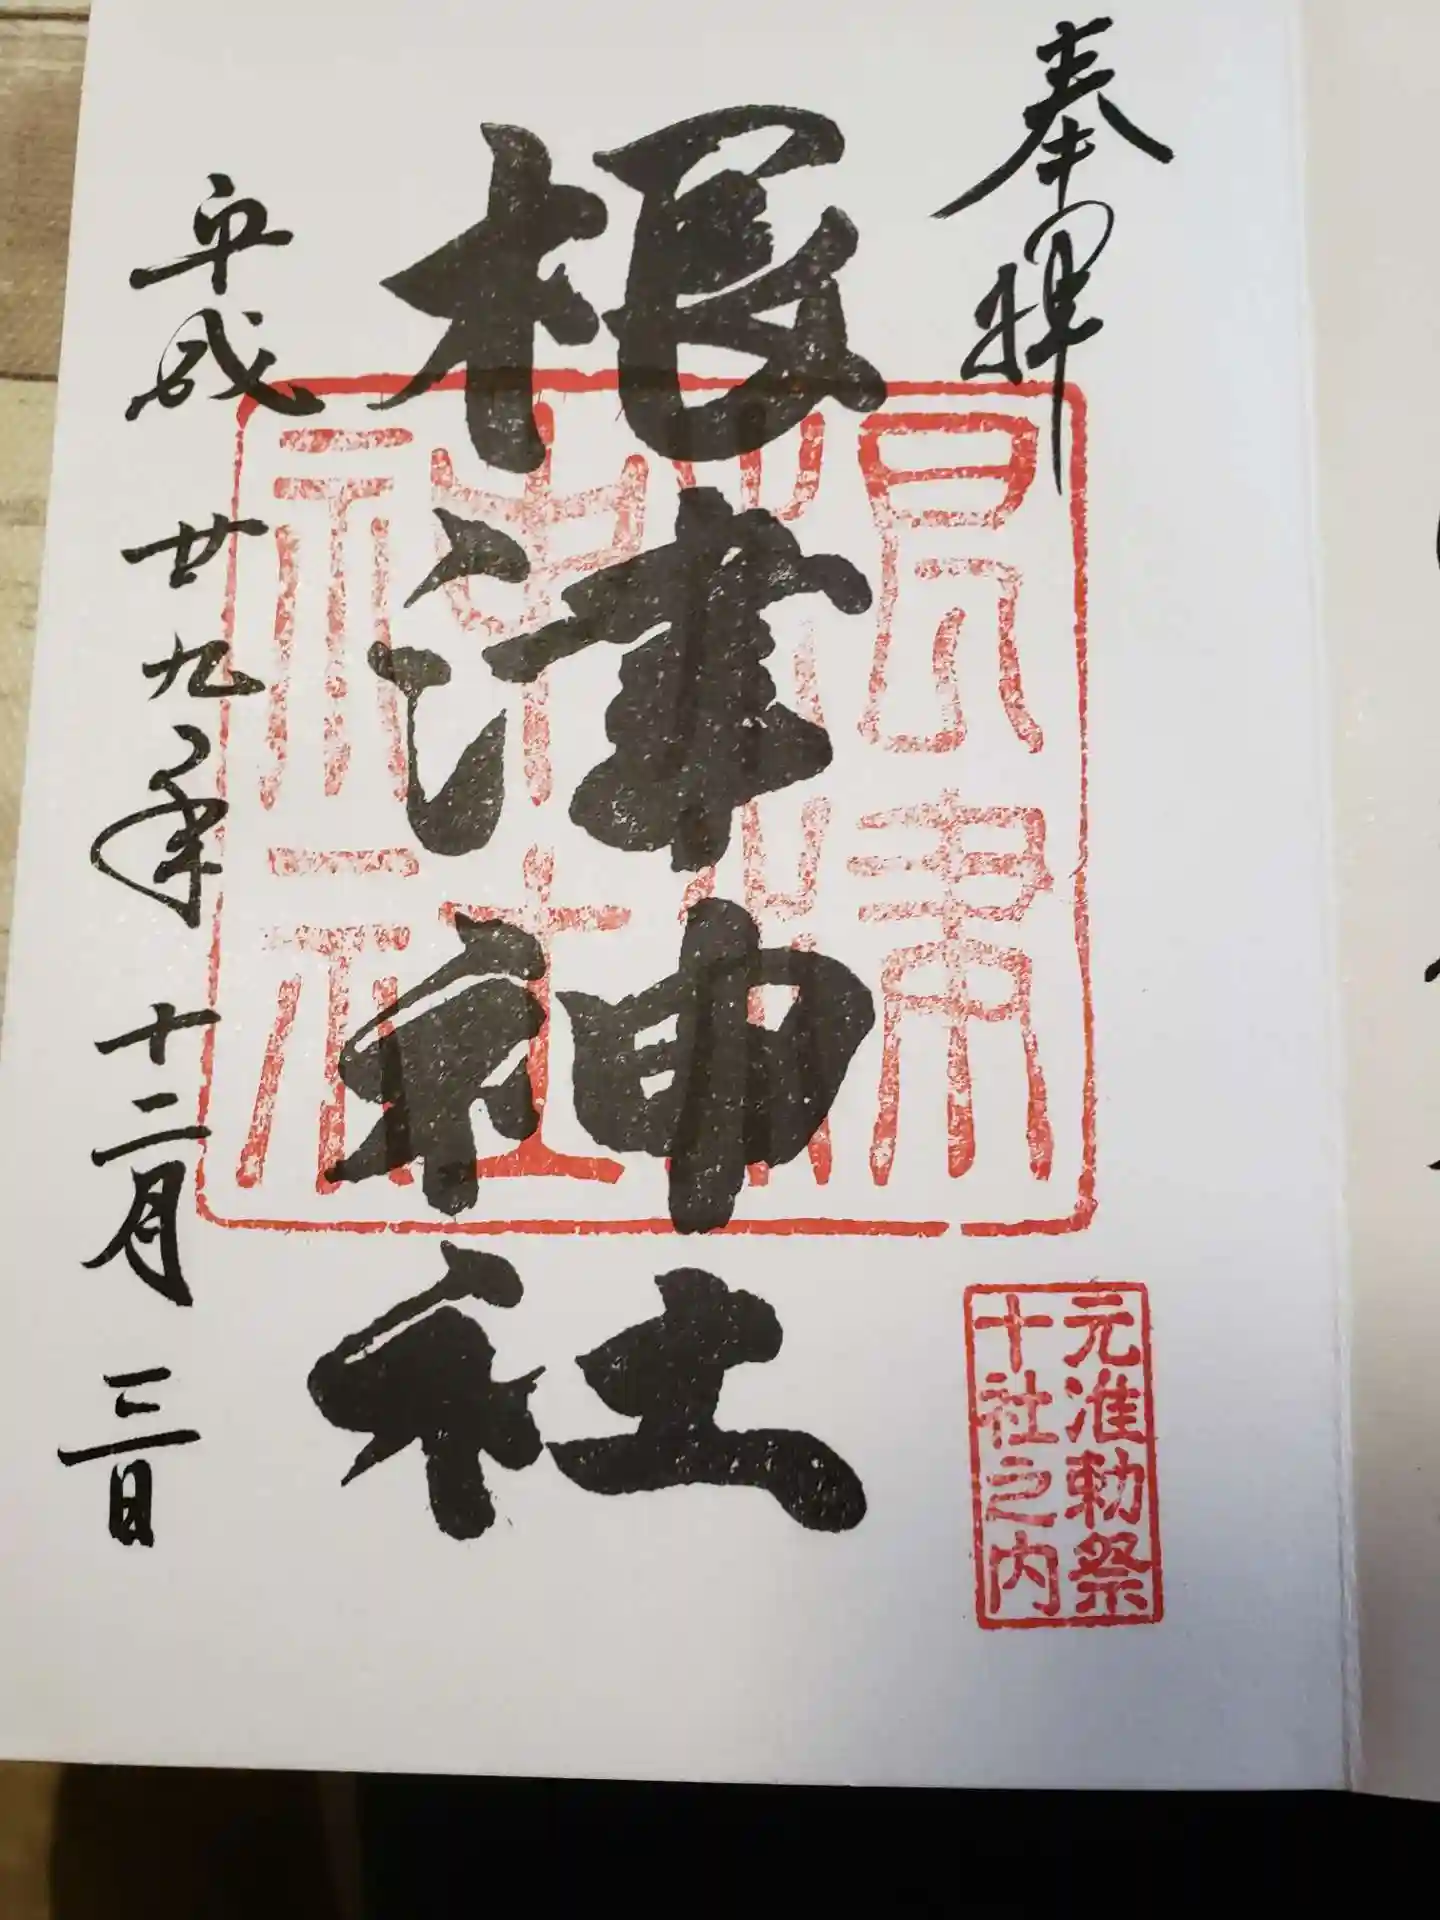 奉拝
根津神社
根津
神社
元准勅祭
十社之内
平成廿九年十二月三日